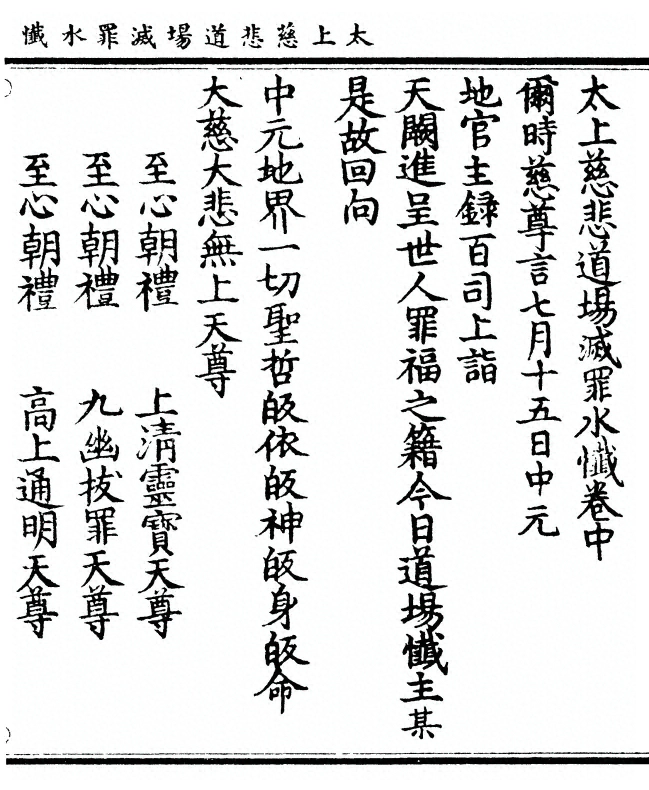 太上慈悲道場滅罪水懺
太上慈悲道場滅罪水懺卷中
爾時慈尊言七月十五日中元
地官主錄百司上詣
天闕進呈世人罪福之籍今日道場懺主某
是故回向
中元地界一切聖哲皈依皈神皈身皈命
大慈大悲無上天尊
至心朝禮 上清靈寶天尊
至心朝禮 九幽拔罪天尊
至心朝禮 高上通明天尊